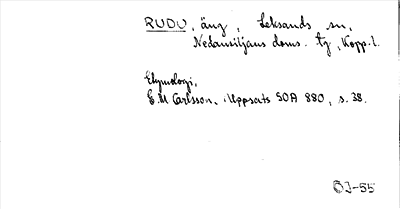 RUDU, äng, Leksands sn,
Nedansiljans doms. tg, Kopp. l.
Etymologi,
E.M Carlsson, Uppsats SOA 880, s. 38.
ÖJ-55